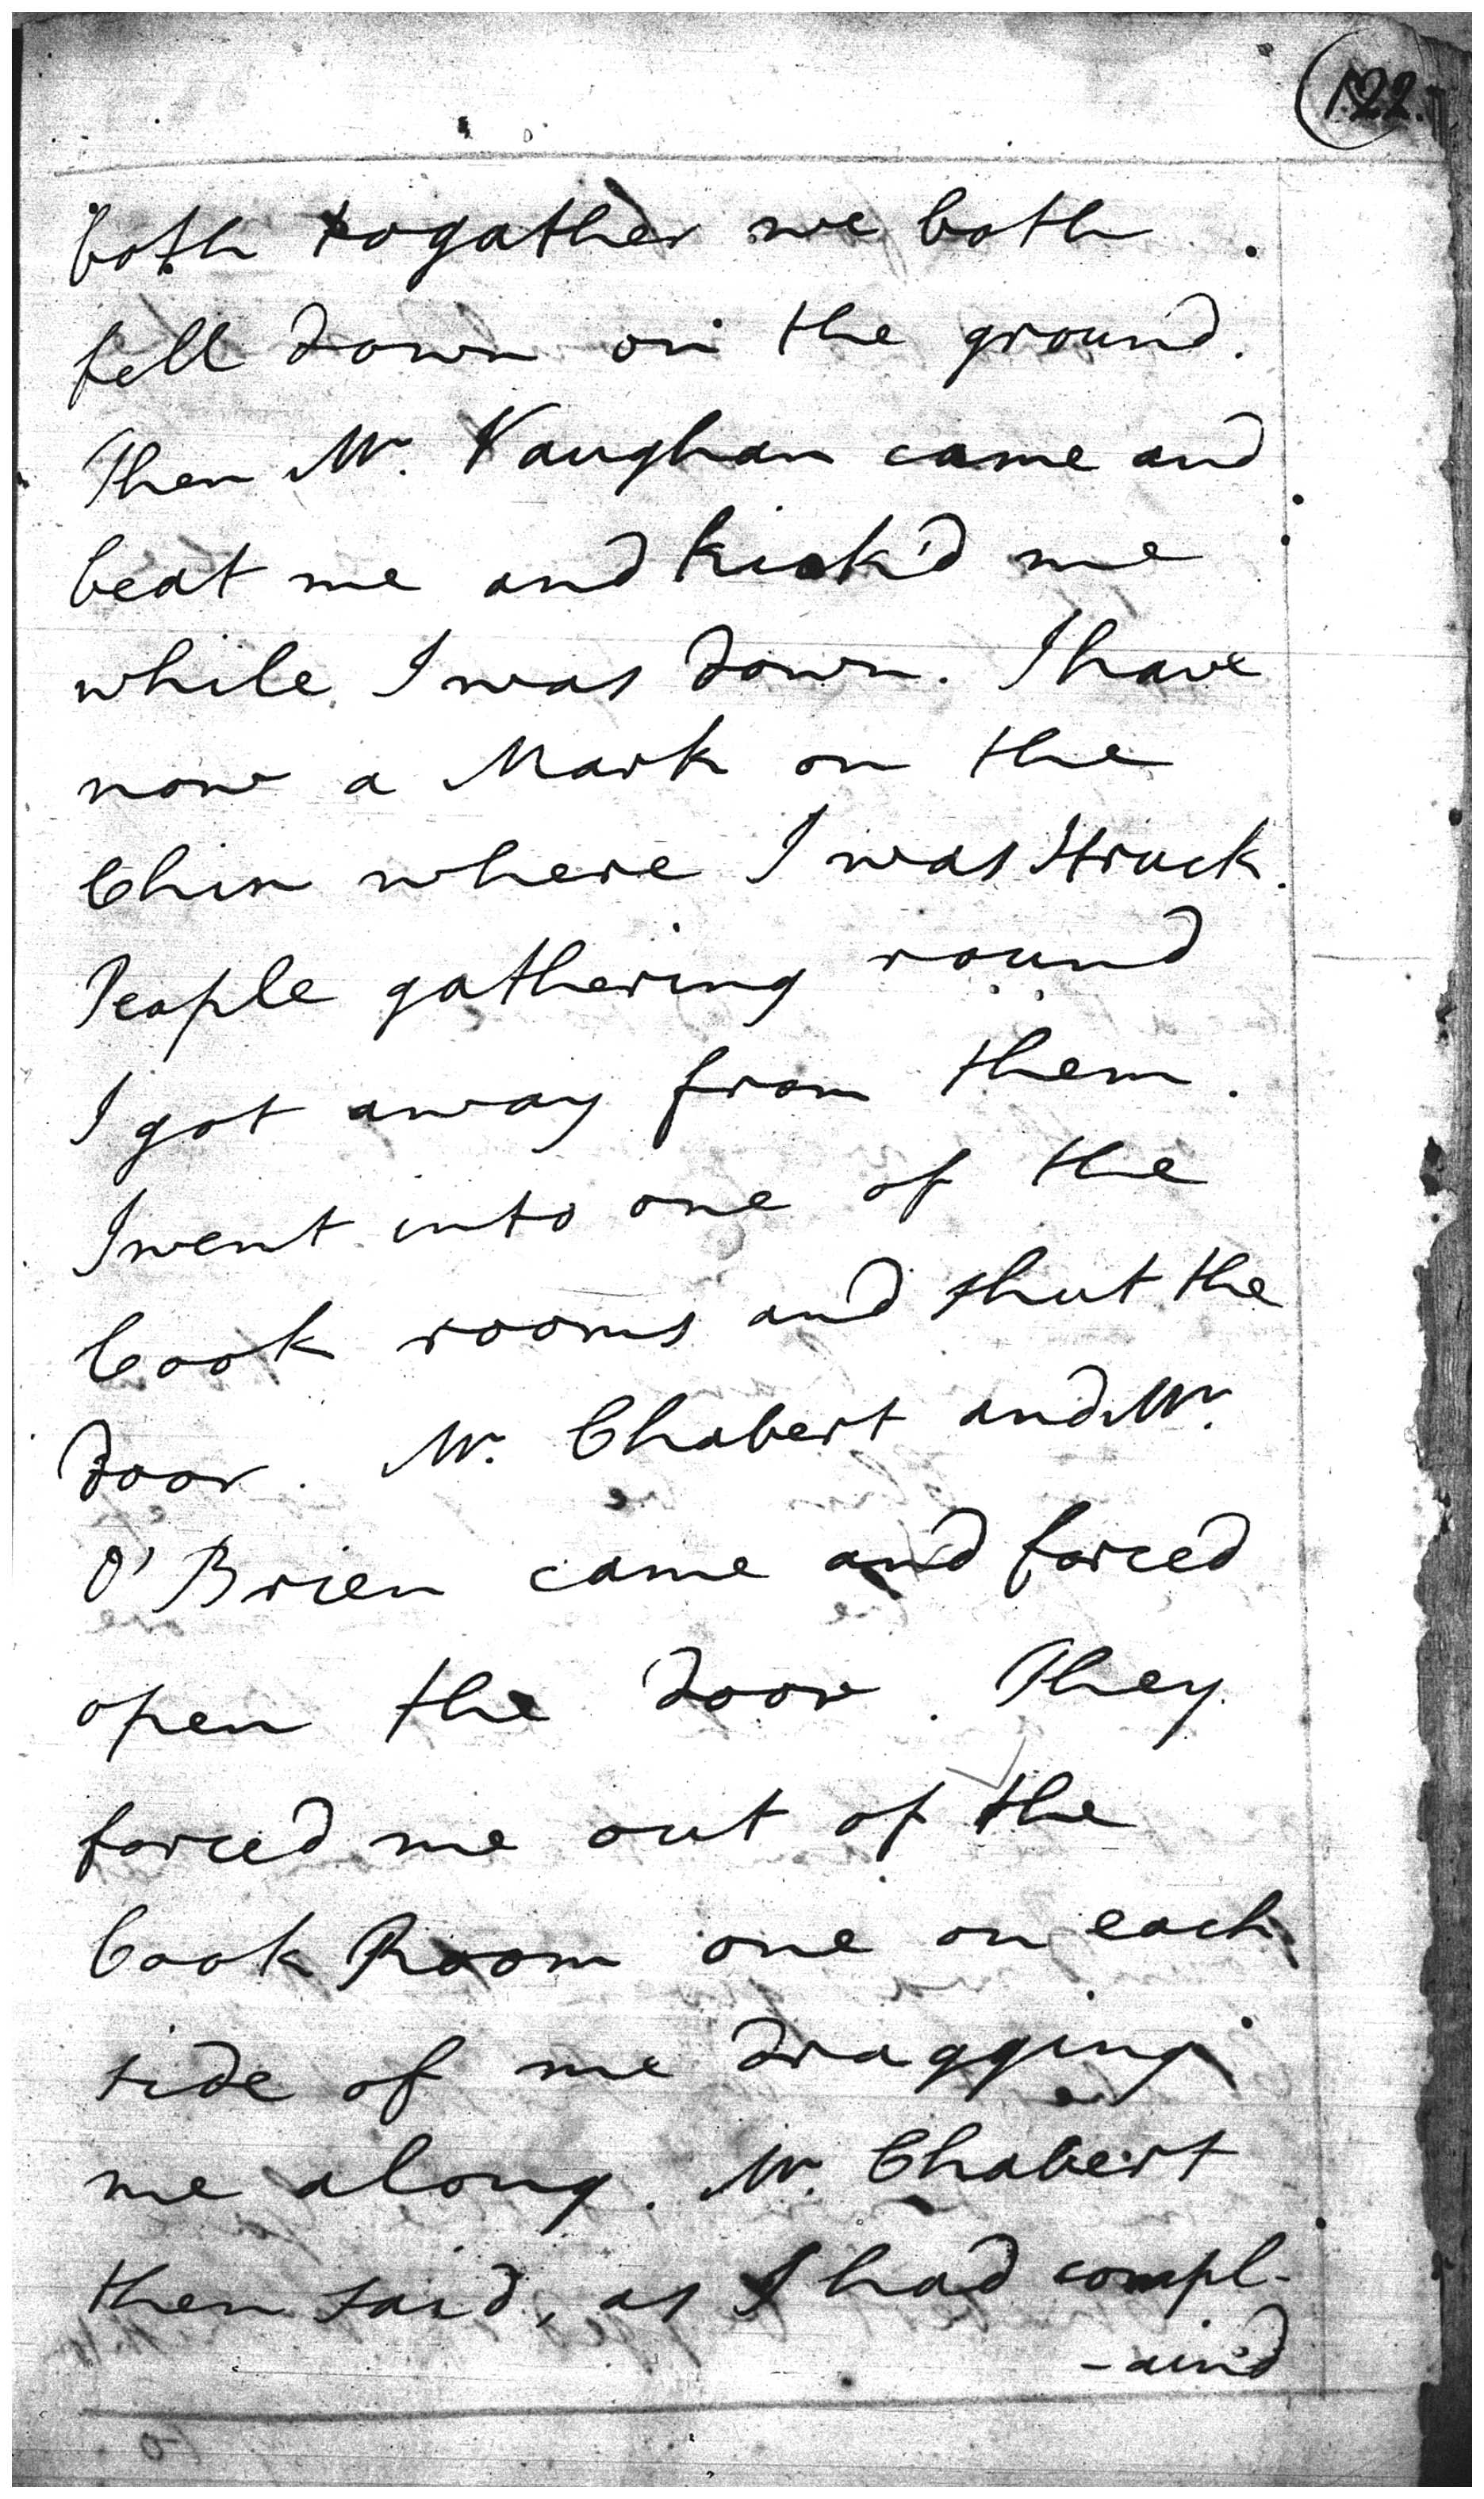 (122.
both togather we both
fell down on the ground.
Then Mr. Vaughan came and
beat me and kick'd me
while I was down. I have
now a Mark on the
Chin where I was Struck.
People gathering round
I got away from them.
I went into one of the
Cook rooms and shut the
door. Mr. Chabert and Mr.
O'Brien came and forced
open the door. They
forced me out of the
Cook Room one on each
side of me dragging
me along. Mr. Chabert
then said, as I had compl-
-ain'd